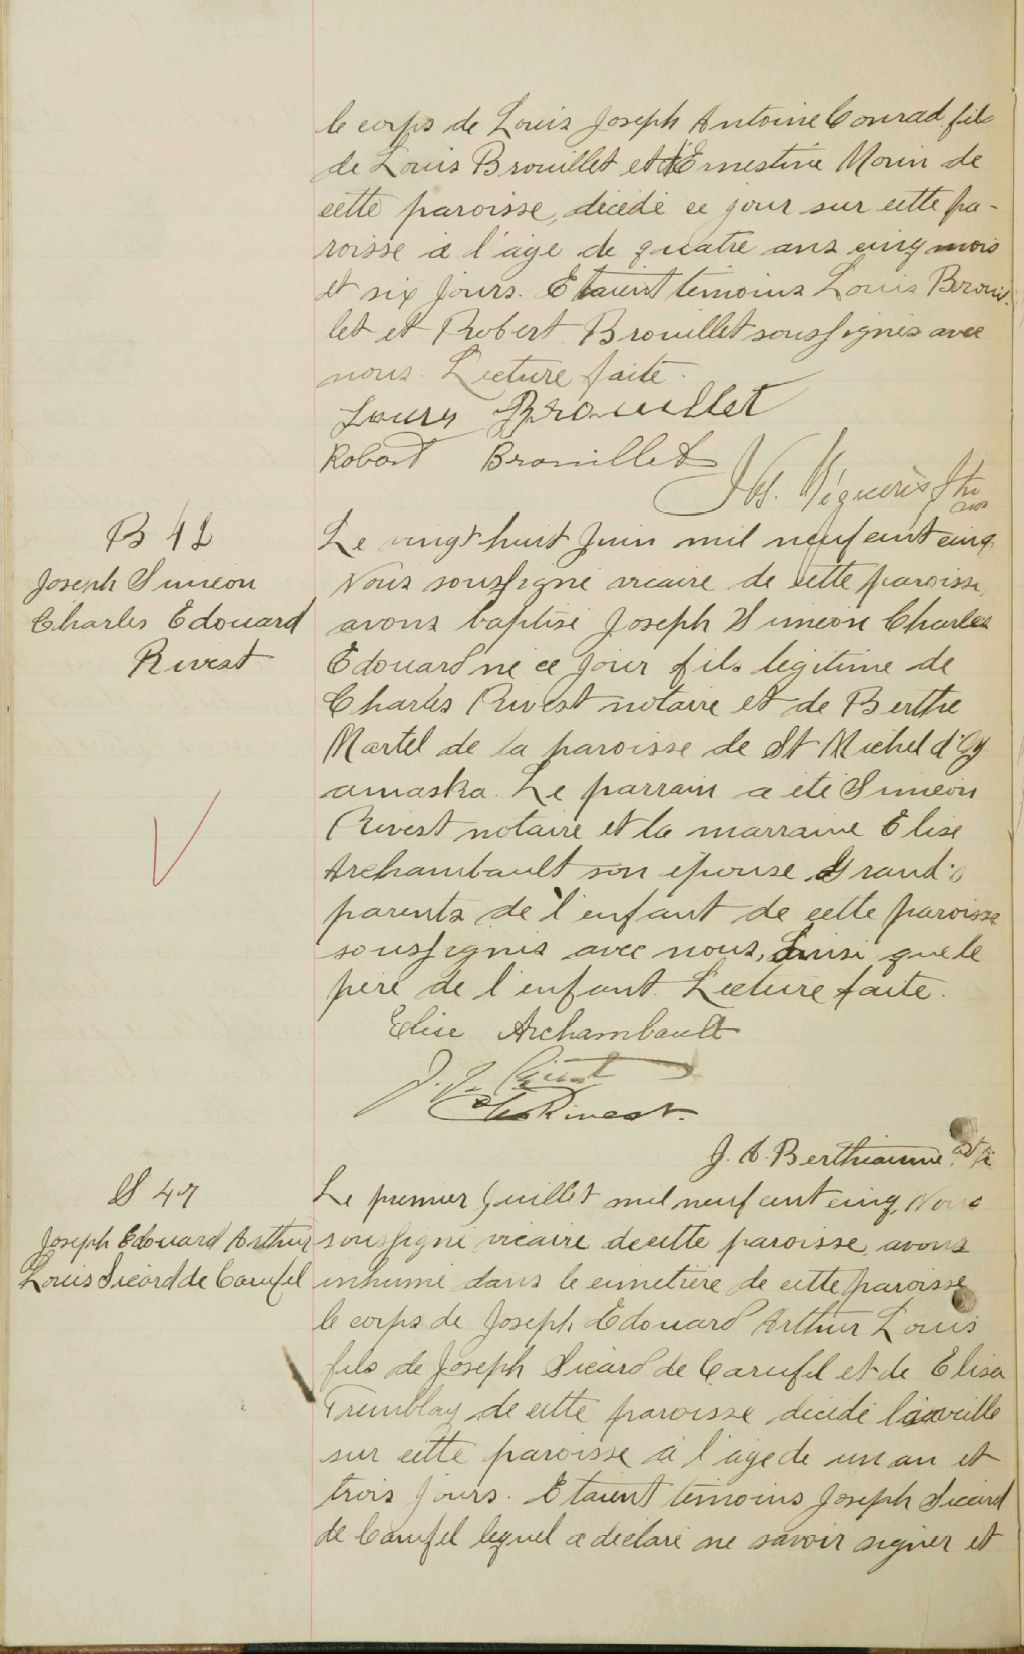 le corps de Louis Joseph Antoine Conrad fils
de Louis Brouillet et d'Ernestine Morin de
cette paroisse, décédé ce jour sur cette pa-
roisse à l'âge de quatre ans cinq mois
et six jours. Etaient témoins Louis Brouil-
let et Robert Brouillet soussignés avec
nous. Lecture faite.
Louis Brouillet
Robert Brouillet
B 42
Joseph Simeon
Charles Edouard
Rivest
Le vingt huit Juin mil neuf cent cinq
Nous soussigné vicaire de cette paroisse,
avons baptisé Joseph Simeon Charles
Edouard né ce jour fils légitime de
Charles Rivest notaire et de Berthe
Martel de la paroisse de St Michel d'Y
amaska. Le parrain a été Simeon
Rivest notaire et la marraine Elise
Archambault son épouse Grands
parents de l'enfant de cette paroisse
soussignés avec nous, ainsi que le
père de l'enfant. Lecture faite.
Elise Archambault
Rivest
Rivest.
J. A. Berthiaume
S 47
Joseph Edouard Arthur
Louis Sicard de Carufel
Le premier Juillet mil neuf cent cinq, Nous
soussigné vicaire de cette paroisse, avons
inhumé dans le cimetière de cette paroisse
le corps de Joseph Edouard Arthur Louis
fils de Joseph Sicard de Carufel et de Elisa
Tremblay de cette paroisse décédé la veille
sur cette paroisse à l'âge de un an et
trois jours. Etaient témoins Joseph Sicard
de Carufel lequel a déclaré ne savoir signer et